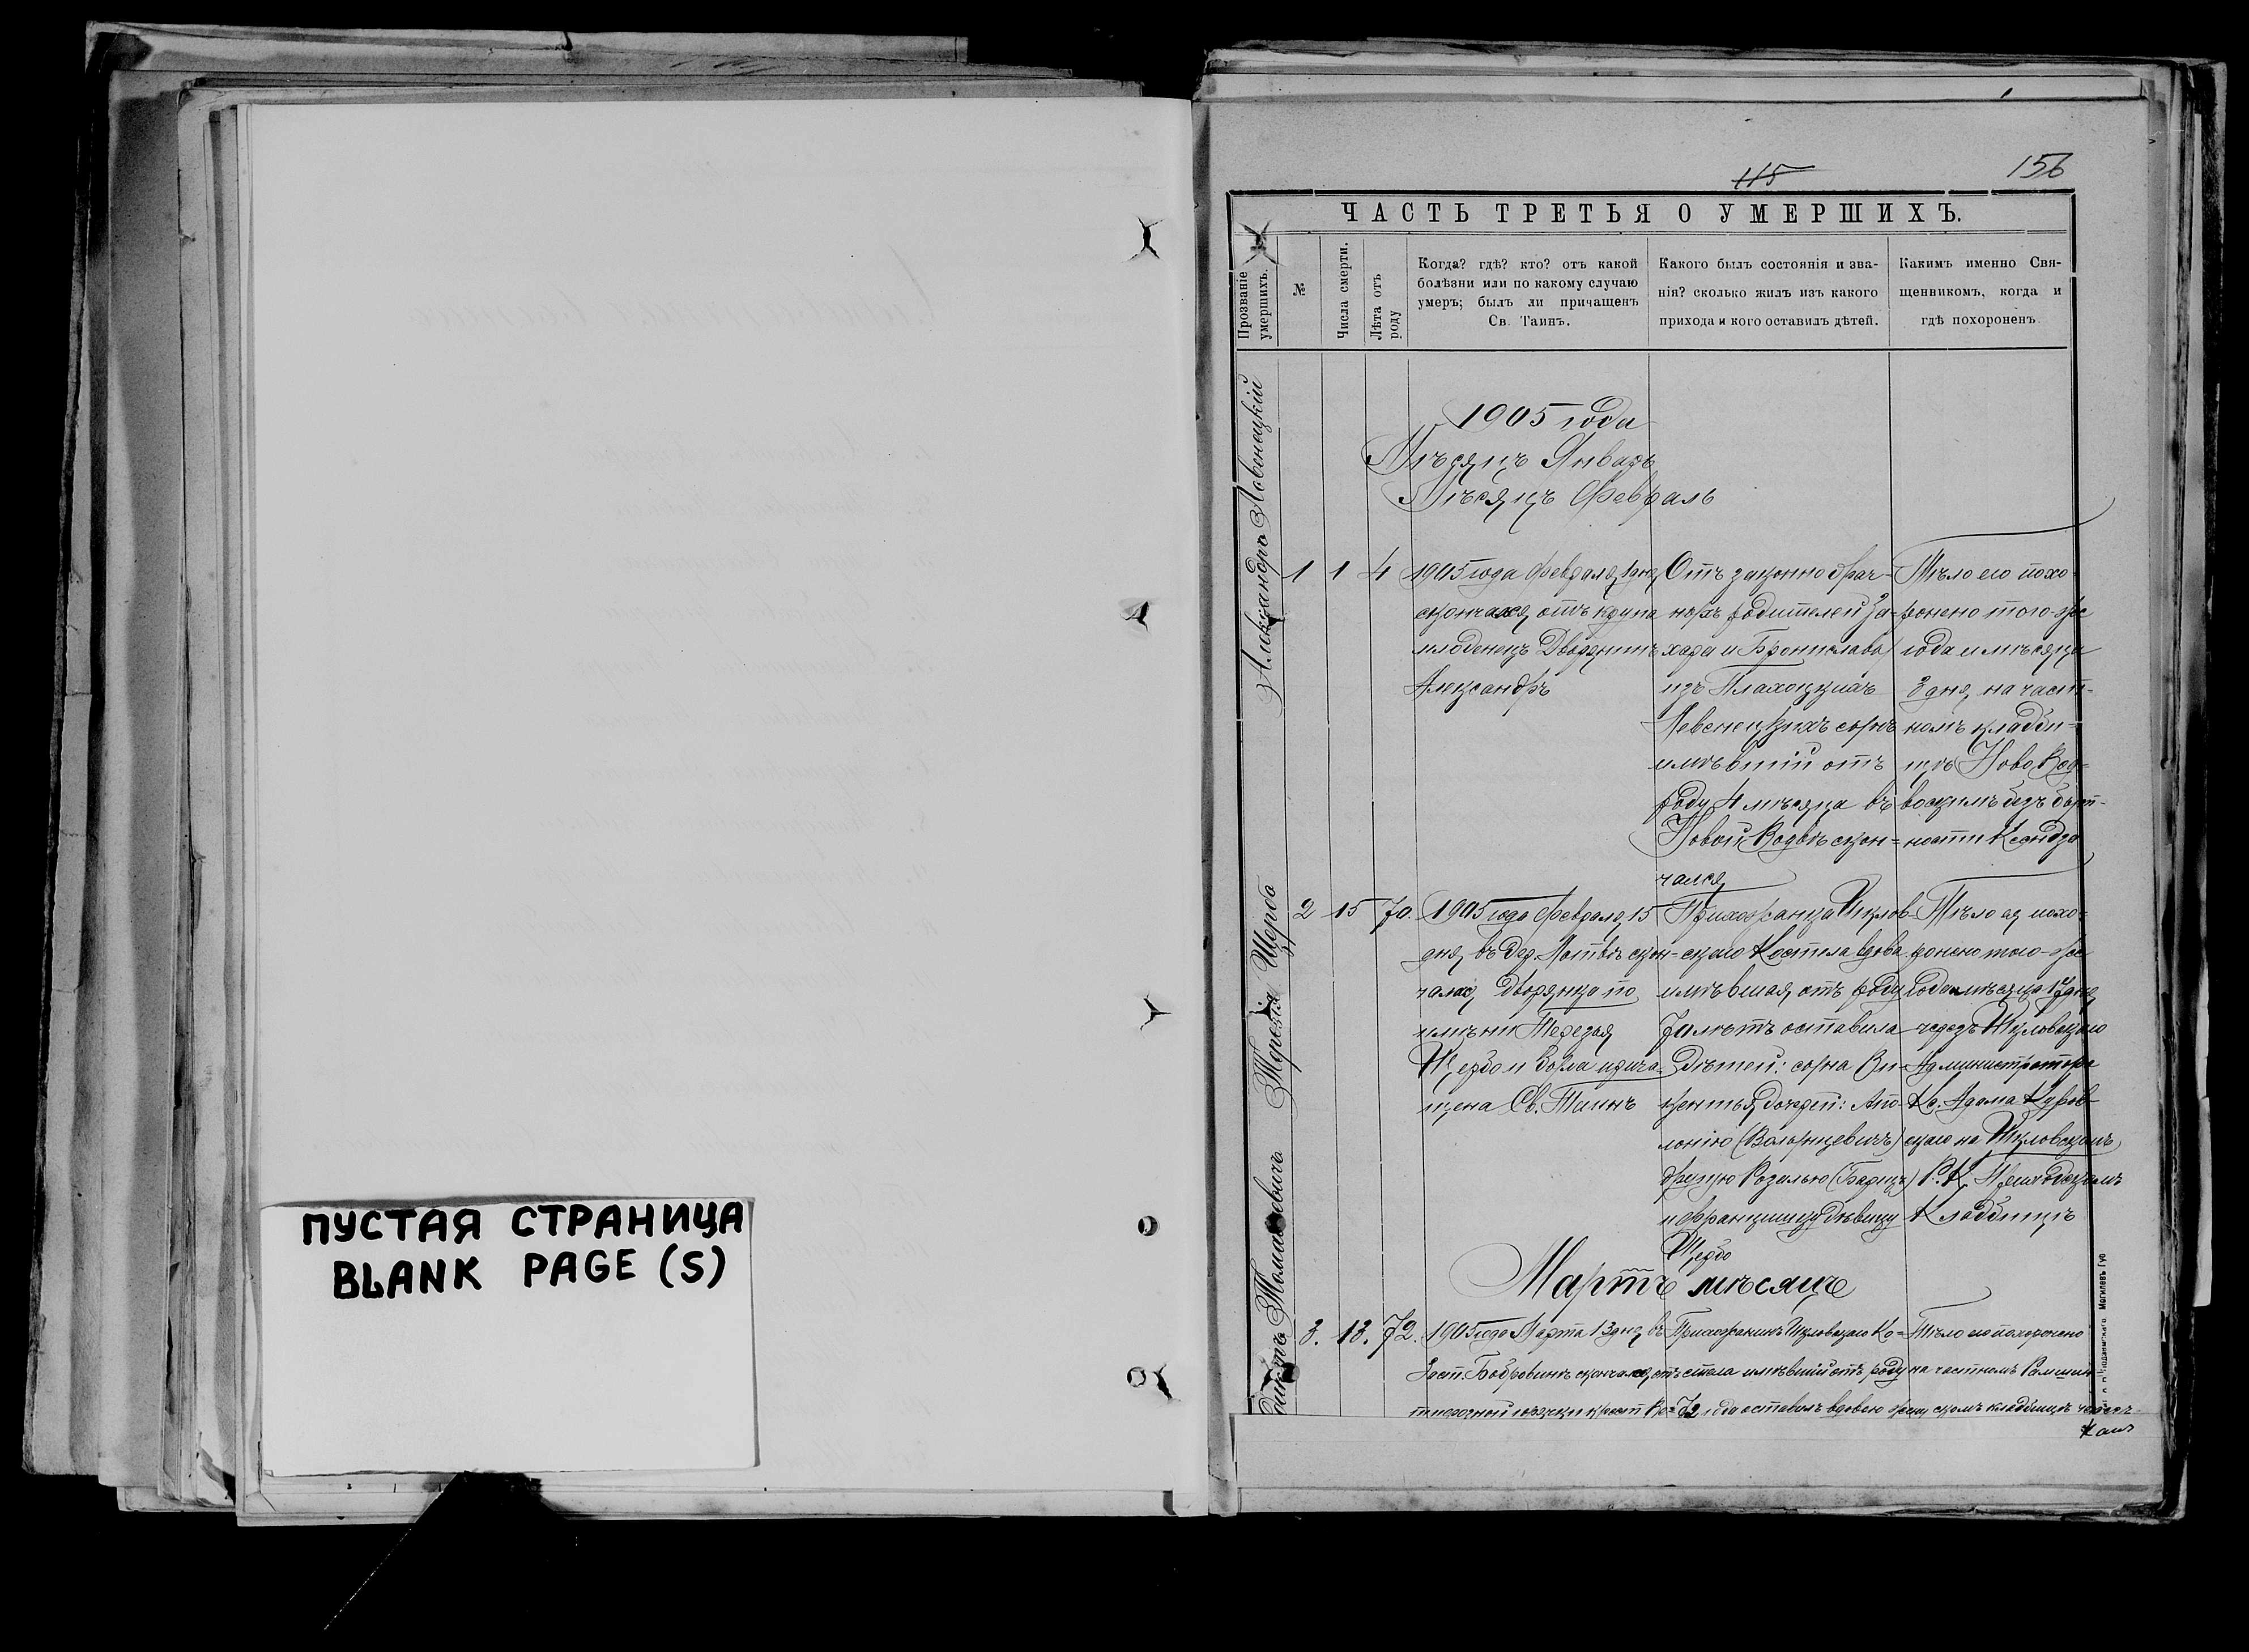 ПУСТАЯ СТРАНИЦА
BLANK PAGE (S)
115
156
ЧАСТЬ ТРЕТЬЯ О УМЕРШИХЪ.
Прозваніе умершихъ.
№
Числа смерти.
Лѣта отъ роду
Когда? гдѣ? кто? отъ какой
болѣзни или по какому случаю
умеръ; былъ ли причащенъ
Св. Таинъ.
Какого былъ состоянія и зва-
нія? сколько жилъ изъ какого
прихода и кого оставилъ дѣтей.
Какимъ именно Свя-
щенникомъ, когда и
гдѣ похороненъ.
1905 года
Мѣсяцъ Январь
Мѣсяцъ Февраль
Александръ
1
1
4
1905 года Февраля 1 дня
скончался отъ крупа
младенецъ Дворянинъ
Александръ
Отъ законнобрач-
ныхъ родителей За-
хара и Брониславы
изъ
Левенецкихъ сынъ
имѣвшій отъ
роду 4 мѣсяца въ
Новой Водвѣ скон-
чался
Тѣло его похо-
ронено того-же
года и мѣсяца
3 дня на част-
номъ кладби-
щѣ Ново Вод-
вскимъ безъ быт-
ности Ксендза
Терезія Щерба
2
15
70.
1905 года Февраля 15
дня въ дер. скон-
чалась дворянка по
имени Терезія
Щербо и была прича-
щена Св. Таинъ
Прихожанка Шклов-
скаго Костела вдова
имѣвшая отъ роду
70 лѣтъ оставила
дѣтей: сына Ви-
кентья дочерей: Апо-
лонію
другую Розалью
и Францишку дѣвицу
Щербо
Тѣло ея похо-
ронено того-же
года мѣсяца 17 дня
чрезъ Шкловскаго
Администратора
Кс. Адама
скаго на Шкловскомъ
Р. К. Приходскомъ
Кладбищѣ
Мартъ мѣсяцъ
3.
13.
72.
1905 года Марта 13 дня въ
скончался отъ
горячки
Прихожанинъ Шкловскаго Ко-
стела имѣвшій отъ роду
72 года оставилъ вдовою
Тѣло его похоронено
на частномъ
скомъ кладбищѣ